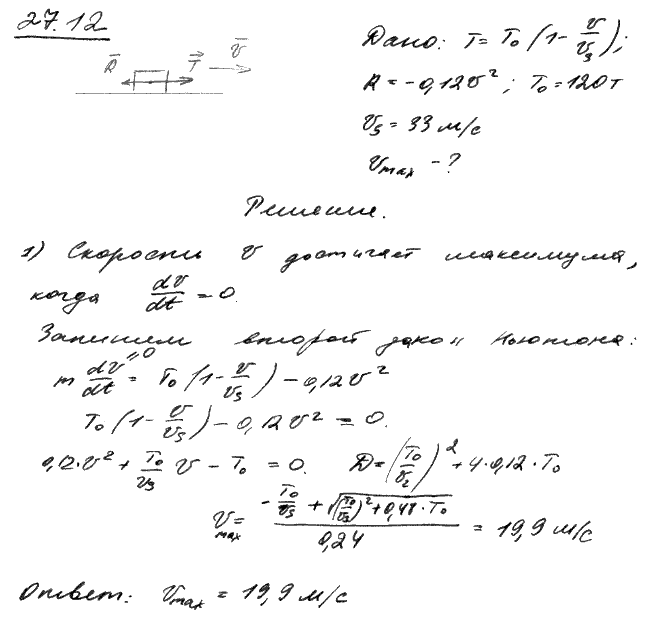 27.12
Дано: T = T₀ (1 - v/v_s);
R̄ T⃗ v̄
R = -0,12v²; T₀ = 120 т
v_s = 33 м/с
v_max - ?
Решение.
1) Скорость v достигает максимума,
когда dv/dt = 0.
Запишем второй закон Ньютона:
m dv/dt = T₀ (1 - v/v_s) - 0,12v²
"0
T₀ (1 - v/v_s) - 0,12v² = 0.
0,12·v² + T₀/v_s v - T₀ = 0. D = (T₀/v_s)² + 4·0,12·T₀
v_max = (-T₀/v_s + √((T₀/v_s)² + 0,48·T₀))/0,24 = 19,9 м/с
Ответ: v_max = 19,9 м/с